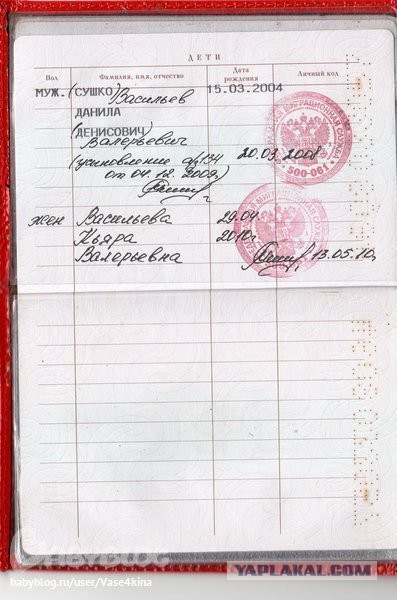 ДЕТИ
Пол Фамилия, имя, отчество Дата рождения Личный код
МУЖ. (СУШКО) Васильев 15.03.2004
ДАНИЛА
(ДЕНИСОВИЧ)
Валерьевич
(усыновление 20.03.2008
от 04.12.2009)
500-061
жен Васильева 29.04.
Кьяра 2010г
Валерьевна 13.05.10г
BABYBLOG
babyblog.ru/user/Vase4kina
YAPLAKAL.COM